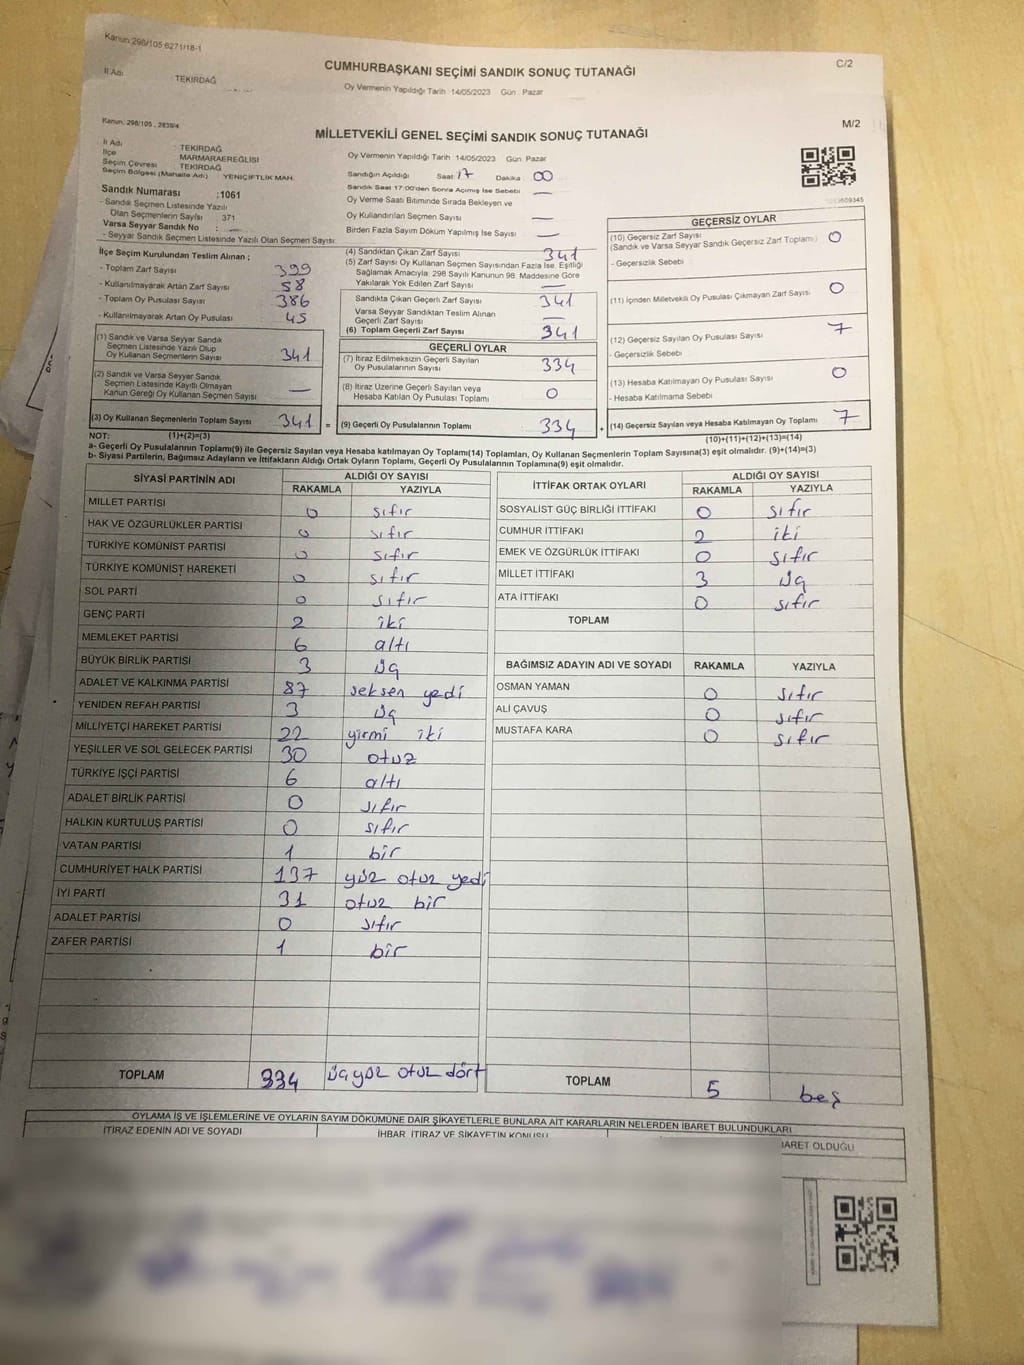 Kanun:298/105-6271/18-1
CUMHURBAŞKANI SEÇİMİ SANDIK SONUÇ TUTANAĞI
C/2
İl Adı TEKİRDAĞ
Oy Vermenin Yapıldığı Tarih 14/05/2023 Gün Pazar
Kanun: 298/105 , 2839/4
MİLLETVEKİLİ GENEL SEÇİMİ SANDIK SONUÇ TUTANAĞI
M/2
İl Adı TEKİRDAĞ
İlçe MARMARAEREĞLİSİ
Seçim Çevresi TEKİRDAĞ
Seçim Bölgesi (Mahalle Adı) YENİÇİFTLİK MAH.
Sandık Numarası :1061
- Sandık Seçmen Listesinde Yazılı
Olan Seçmenlerin Sayısı : 371
Varsa Seyyar Sandık No : —
- Seyyar Sandık Seçmen Listesinde Yazılı Olan Seçmen Sayısı:
Oy Vermenin Yapıldığı Tarih 14/05/2023 Gün Pazar
Sandığın Açıldığı Saat 17 Dakika 00
Sandık Saat 17:00'den Sonra Açımış İse Sebebi —
Oy Verme Saati Bitiminde Sırada Bekleyen ve
Oy Kullandırılan Seçmen Sayısı —
Birden Fazla Sayım Döküm Yapılmış İse Sayısı —
İlçe Seçim Kurulundan Teslim Alınan ;
- Toplam Zarf Sayısı 399
- Kullanılmayarak Artan Zarf Sayısı 58
- Toplam Oy Pusulası Sayısı 386
- Kullanılmayarak Artan Oy Pusulası 45
(1) Sandık ve Varsa Seyyar Sandık
Seçmen Listesinde Yazılı Olup
Oy Kullanan Seçmenlerin Sayısı 341
(2) Sandık ve Varsa Seyyar Sandık
Seçmen Listesinde Kayıtlı Olmayan
Kanun Gereği Oy Kullanan Seçmen Sayısı —
(3) Oy Kullanan Seçmenlerin Toplam Sayısı 341 =
(4) Sandıktan Çıkan Zarf Sayısı 341
(5) Zarf Sayısı Oy Kullanan Seçmen Sayısından Fazla İse, Eşitliği
Sağlamak Amacıyla; 298 Sayılı Kanunun 98. Maddesine Göre
Yakılarak Yok Edilen Zarf Sayısı —
Sandıkta Çıkan Geçerli Zarf Sayısı 341
Varsa Seyyar Sandıktan Teslim Alınan
Geçerli Zarf Sayısı —
(6) Toplam Geçerli Zarf Sayısı 341
GEÇERLİ OYLAR
(7) İtiraz Edilmeksizin Geçerli Sayılan
Oy Pusulalarının Sayısı 334
(8) İtiraz Üzerine Geçerli Sayılan veya
Hesaba Katılan Oy Pusulası Toplamı 0
(9) Geçerli Oy Pusulalarının Toplamı 334 +
GEÇERSİZ OYLAR
(10) Geçersiz Zarf Sayısı
(Sandık ve Varsa Seyyar Sandık Geçersiz Zarf Toplamı) 0
- Geçersizlik Sebebi
(11) İçinden Milletvekili Oy Pusulası Çıkmayan Zarf Sayısı 0
(12) Geçersiz Sayılan Oy Pusulası Sayısı 7
- Geçersizlik Sebebi
(13) Hesaba Katılmayan Oy Pusulası Sayısı 0
- Hesaba Katılmama Sebebi
(14) Geçersiz Sayılan veya Hesaba Katılmayan Oy Toplamı 7
NOT: (1)+(2)=(3)
(10)+(11)+(12)+(13)=(14)
a- Geçerli Oy Pusulalarının Toplamı(9) ile Geçersiz Sayılan veya Hesaba katılmayan Oy Toplamı(14) Toplamları, Oy Kullanan Seçmenlerin Toplam Sayısına(3) eşit olmalıdır. (9)+(14)=(3)
b- Siyasi Partilerin, Bağımsız Adayların ve İttifakların Aldığı Ortak Oyların Toplamı, Geçerli Oy Pusulalarının Toplamına(9) eşit olmalıdır.
SİYASİ PARTİNİN ADI ALDIĞI OY SAYISI
RAKAMLA YAZIYLA
MİLLET PARTİSİ 0 sıfır
HAK VE ÖZGÜRLÜKLER PARTİSİ 0 sıfır
TÜRKİYE KOMÜNİST PARTİSİ 0 sıfır
TÜRKİYE KOMÜNİST HAREKETİ 0 sıfır
SOL PARTİ 0 sıfır
GENÇ PARTİ 2 iki
MEMLEKET PARTİSİ 6 altı
BÜYÜK BİRLİK PARTİSİ 3 üç
ADALET VE KALKINMA PARTİSİ 87 seksen yedi
YENİDEN REFAH PARTİSİ 3 üç
MİLLİYETÇİ HAREKET PARTİSİ 22 yirmi iki
YEŞİLLER VE SOL GELECEK PARTİSİ 30 otuz
TÜRKİYE İŞÇİ PARTİSİ 6 altı
ADALET BİRLİK PARTİSİ 0 sıfır
HALKIN KURTULUŞ PARTİSİ 0 sıfır
VATAN PARTİSİ 1 bir
CUMHURİYET HALK PARTİSİ 137 yüz otuz yedi
İYİ PARTİ 31 otuz bir
ADALET PARTİSİ 0 sıfır
ZAFER PARTİSİ 1 bir
TOPLAM 334 üçyüz otuz dört
İTTİFAK ORTAK OYLARI ALDIĞI OY SAYISI
RAKAMLA YAZIYLA
SOSYALİST GÜÇ BİRLİĞİ İTTİFAKI 0 sıfır
CUMHUR İTTİFAKI 2 iki
EMEK VE ÖZGÜRLÜK İTTİFAKI 0 sıfır
MİLLET İTTİFAKI 3 üç
ATA İTTİFAKI 0 sıfır
TOPLAM
BAĞIMSIZ ADAYIN ADI VE SOYADI RAKAMLA YAZIYLA
OSMAN YAMAN 0 sıfır
ALİ ÇAVUŞ 0 sıfır
MUSTAFA KARA 0 sıfır
TOPLAM 5 beş
OYLAMA İŞ VE İŞLEMLERİNE VE OYLARIN SAYIM DÖKÜMÜNE DAİR ŞİKAYETLERLE BUNLARA AİT KARARLARIN NELERDEN İBARET BULUNDUKLARI
İTİRAZ EDENİN ADI VE SOYADI İHBAR, İTİRAZ VE ŞİKAYETİN KONUSU BARET OLDUĞU